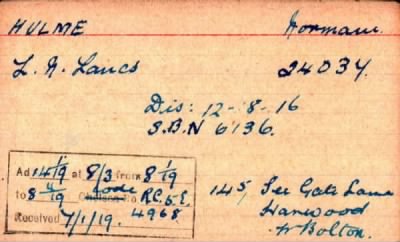 HULME Norman.
L. N. Lancs 24034.
Dis: 12-8-16
S.B.N 6136.
Ad 14/1/19 at 8/3 from 8/19
to 8/4/19 Code R.C. 5.E.
Received 7/1/19. 4968.
145, Tee Gate Lane
Harwood
Nr Bolton.